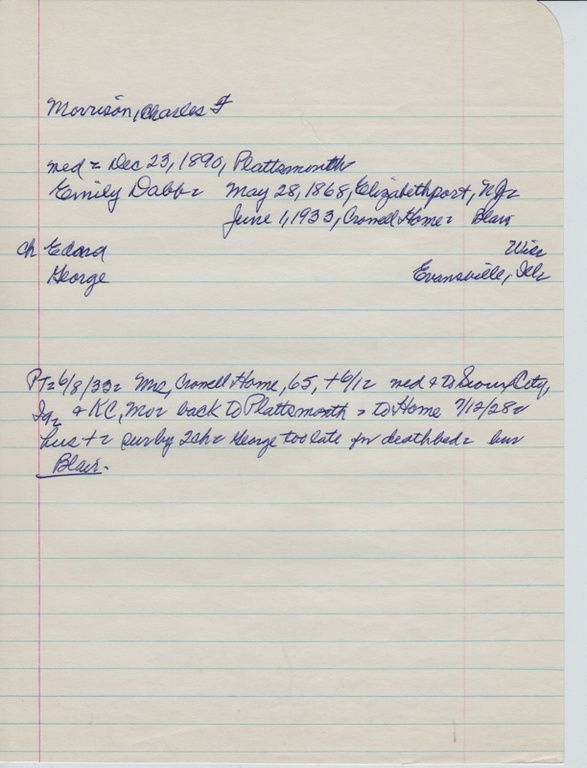 Morrison, Charles F
med = Dec 23, 1890, Plattsmouth
Emily Dabb = May 28, 1868, Elizabethport, NJ=
June 1, 1933, Crowell Home = Blair
Ch Edard Wis=
George Evansville, Ill=
PT= 6/8/33= Mrs, Crowell Home, 65, + 6/1= med & to Sioux City,
Ia= & KC, Mo= back to Plattsmouth = to Home 7/12/28=
hus += surby 2ch= George too late for deathbed= bur
Blair.